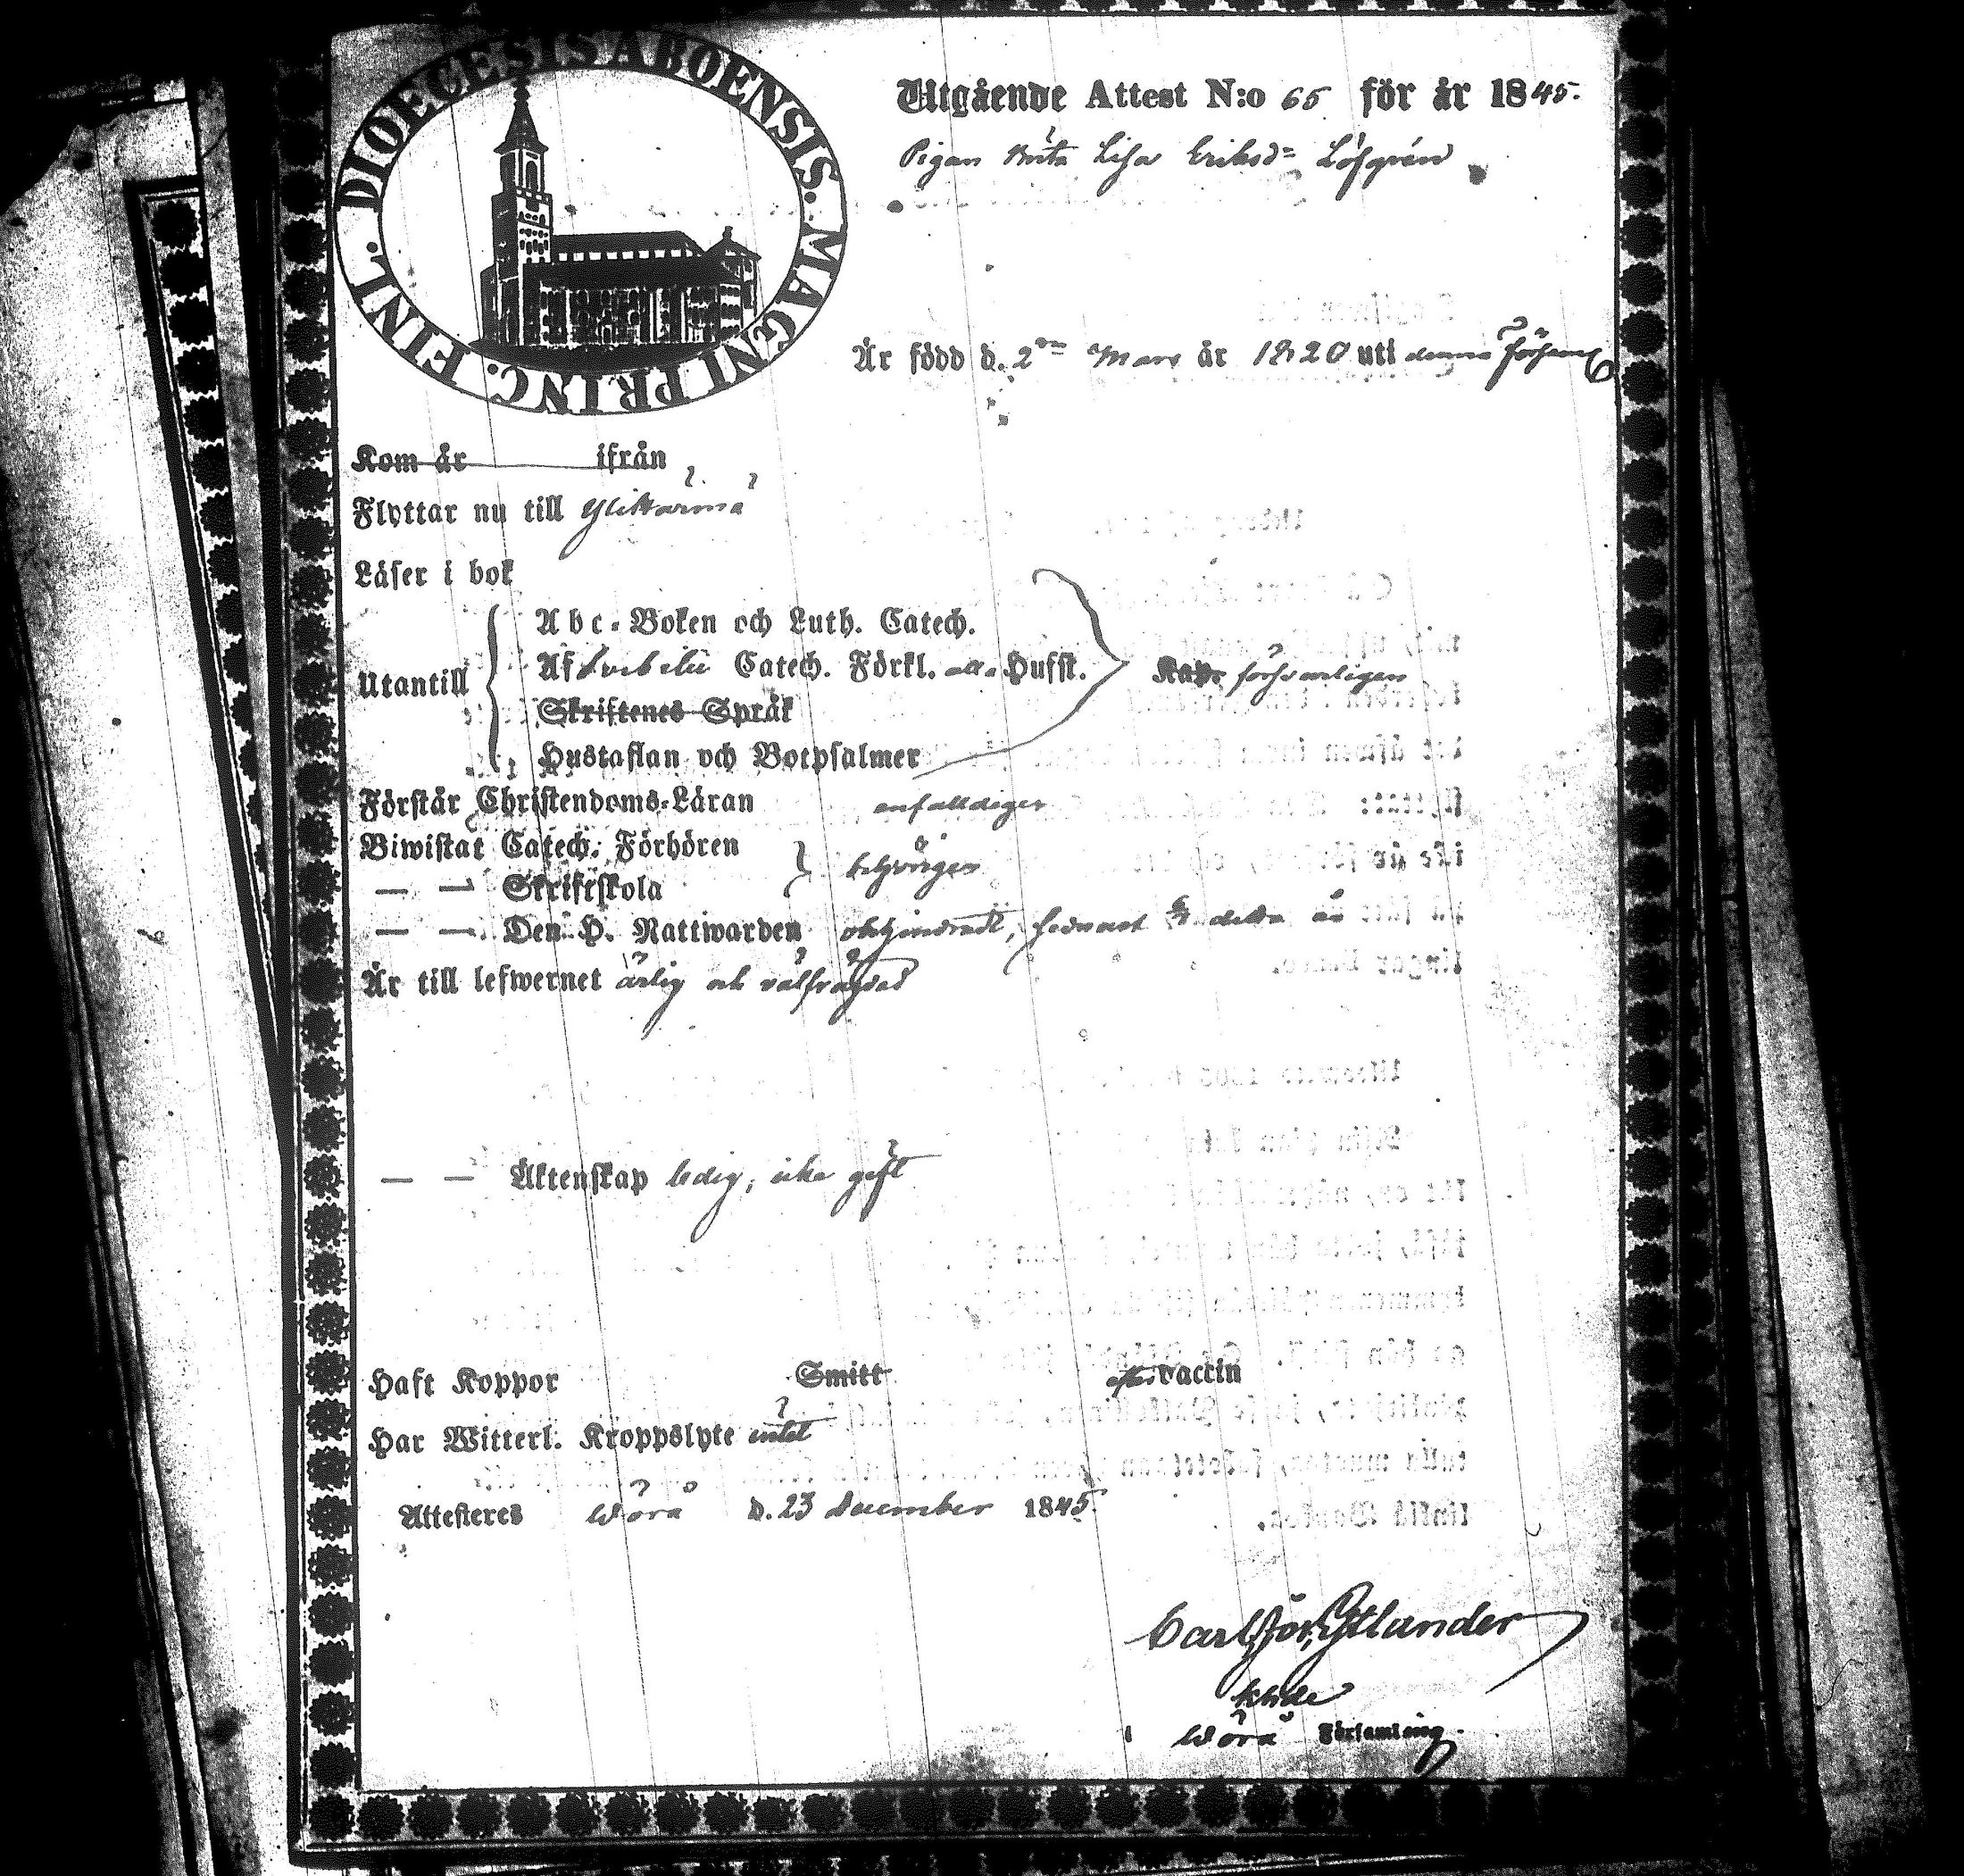 DIOECESIS ABOENSIS. MAGNI PRINC. FINL.
Utgående Attest N:o 65 för år 1845.
Pigan Brita Lisa Eriksd= Löfgrén
Är född d. 2 Mars år 1820 uti denna Förs
Kom år ifrån
Flyttar nu till Ylikarmä
Läser i bok
Abc-Boken och Luth. Catech.
Utantill Af Catech. Förkl. alla Husst. försvarligen
Skriftenes Språk
Hustaflan och Botpsalmer
Förstår Christendoms-Läran enfaldigen
Biwistat Catech. Förhören
— — Skriftskola behörigen
— — Den H. Nattwarden obehindradt, sednast detta år
Är till lefwernet ärlig och välfrägdad
— — Äktenskap ledig, icke gift
Haft Koppor Smitt efter Vaccin
Har Witterl. Kroppslyte intet
Attesteres Wörå d. 23 December 1845.
Carl Gör. Ytlander
Khde
i Wörå Församling.